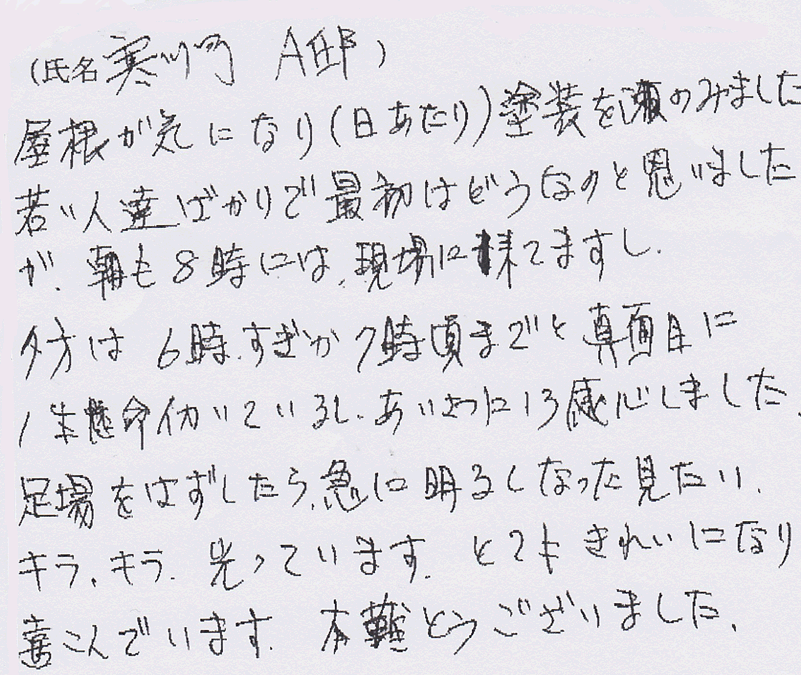 (氏名 寒川町 A邸)
屋根が気になり(日あたり)塗装を頼のみました
若い人達ばかりで最初はどうなのと思いました
が、朝も8時には、現場に来てますし、
夕方は 6時、すぎか7時頃までと真面目に
1生懸命仂いているし、あいさつに
感心しました、
足場をはずしたら、急に明るくなった見たい、
キラ、キラ、光っています。とてもきれいになり
喜こんでいます。有難とうございました、